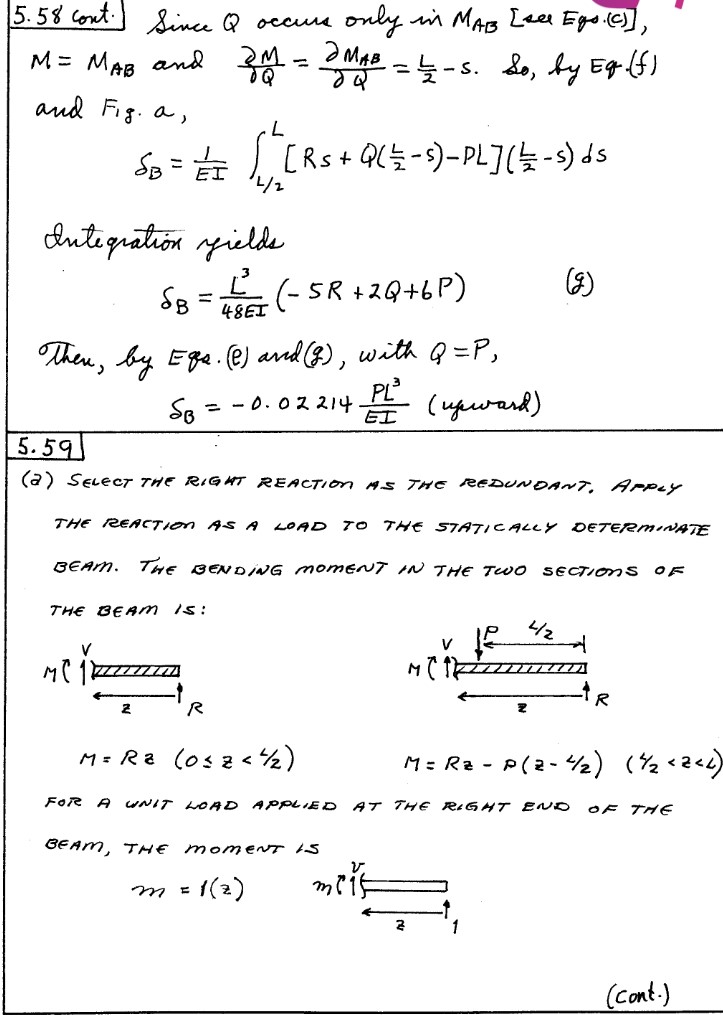 5.58 cont. Since Q occurs only in M_AB [see Eqs.(c)],
M = M_AB and ∂M/∂Q = ∂M_AB/∂Q = L/2 - s. So, by Eq.(f)
and Fig. a,
δ_B = 1/EI ∫_{L/2}^{L} [Rs + Q(L/2 - s) - PL](L/2 - s) ds
Integration yields
δ_B = L³/48EI (- 5R + 2Q + 6P) (g)
Then, by Eqs. (e) and (g), with Q = P,
δ_B = -0.02214 PL³/EI (upward)
5.59
(a) SELECT THE RIGHT REACTION AS THE REDUNDANT. APPLY
THE REACTION AS A LOAD TO THE STATICALLY DETERMINATE
BEAM. THE BENDING MOMENT IN THE TWO SECTIONS OF
THE BEAM IS:
M V z R
M V P L/2 z R
M = Rz (0 ≤ z < L/2) M = Rz - P(z - L/2) (L/2 < z < L)
FOR A UNIT LOAD APPLIED AT THE RIGHT END OF THE
BEAM, THE MOMENT IS
m = 1(z) m v z 1
(cont.)